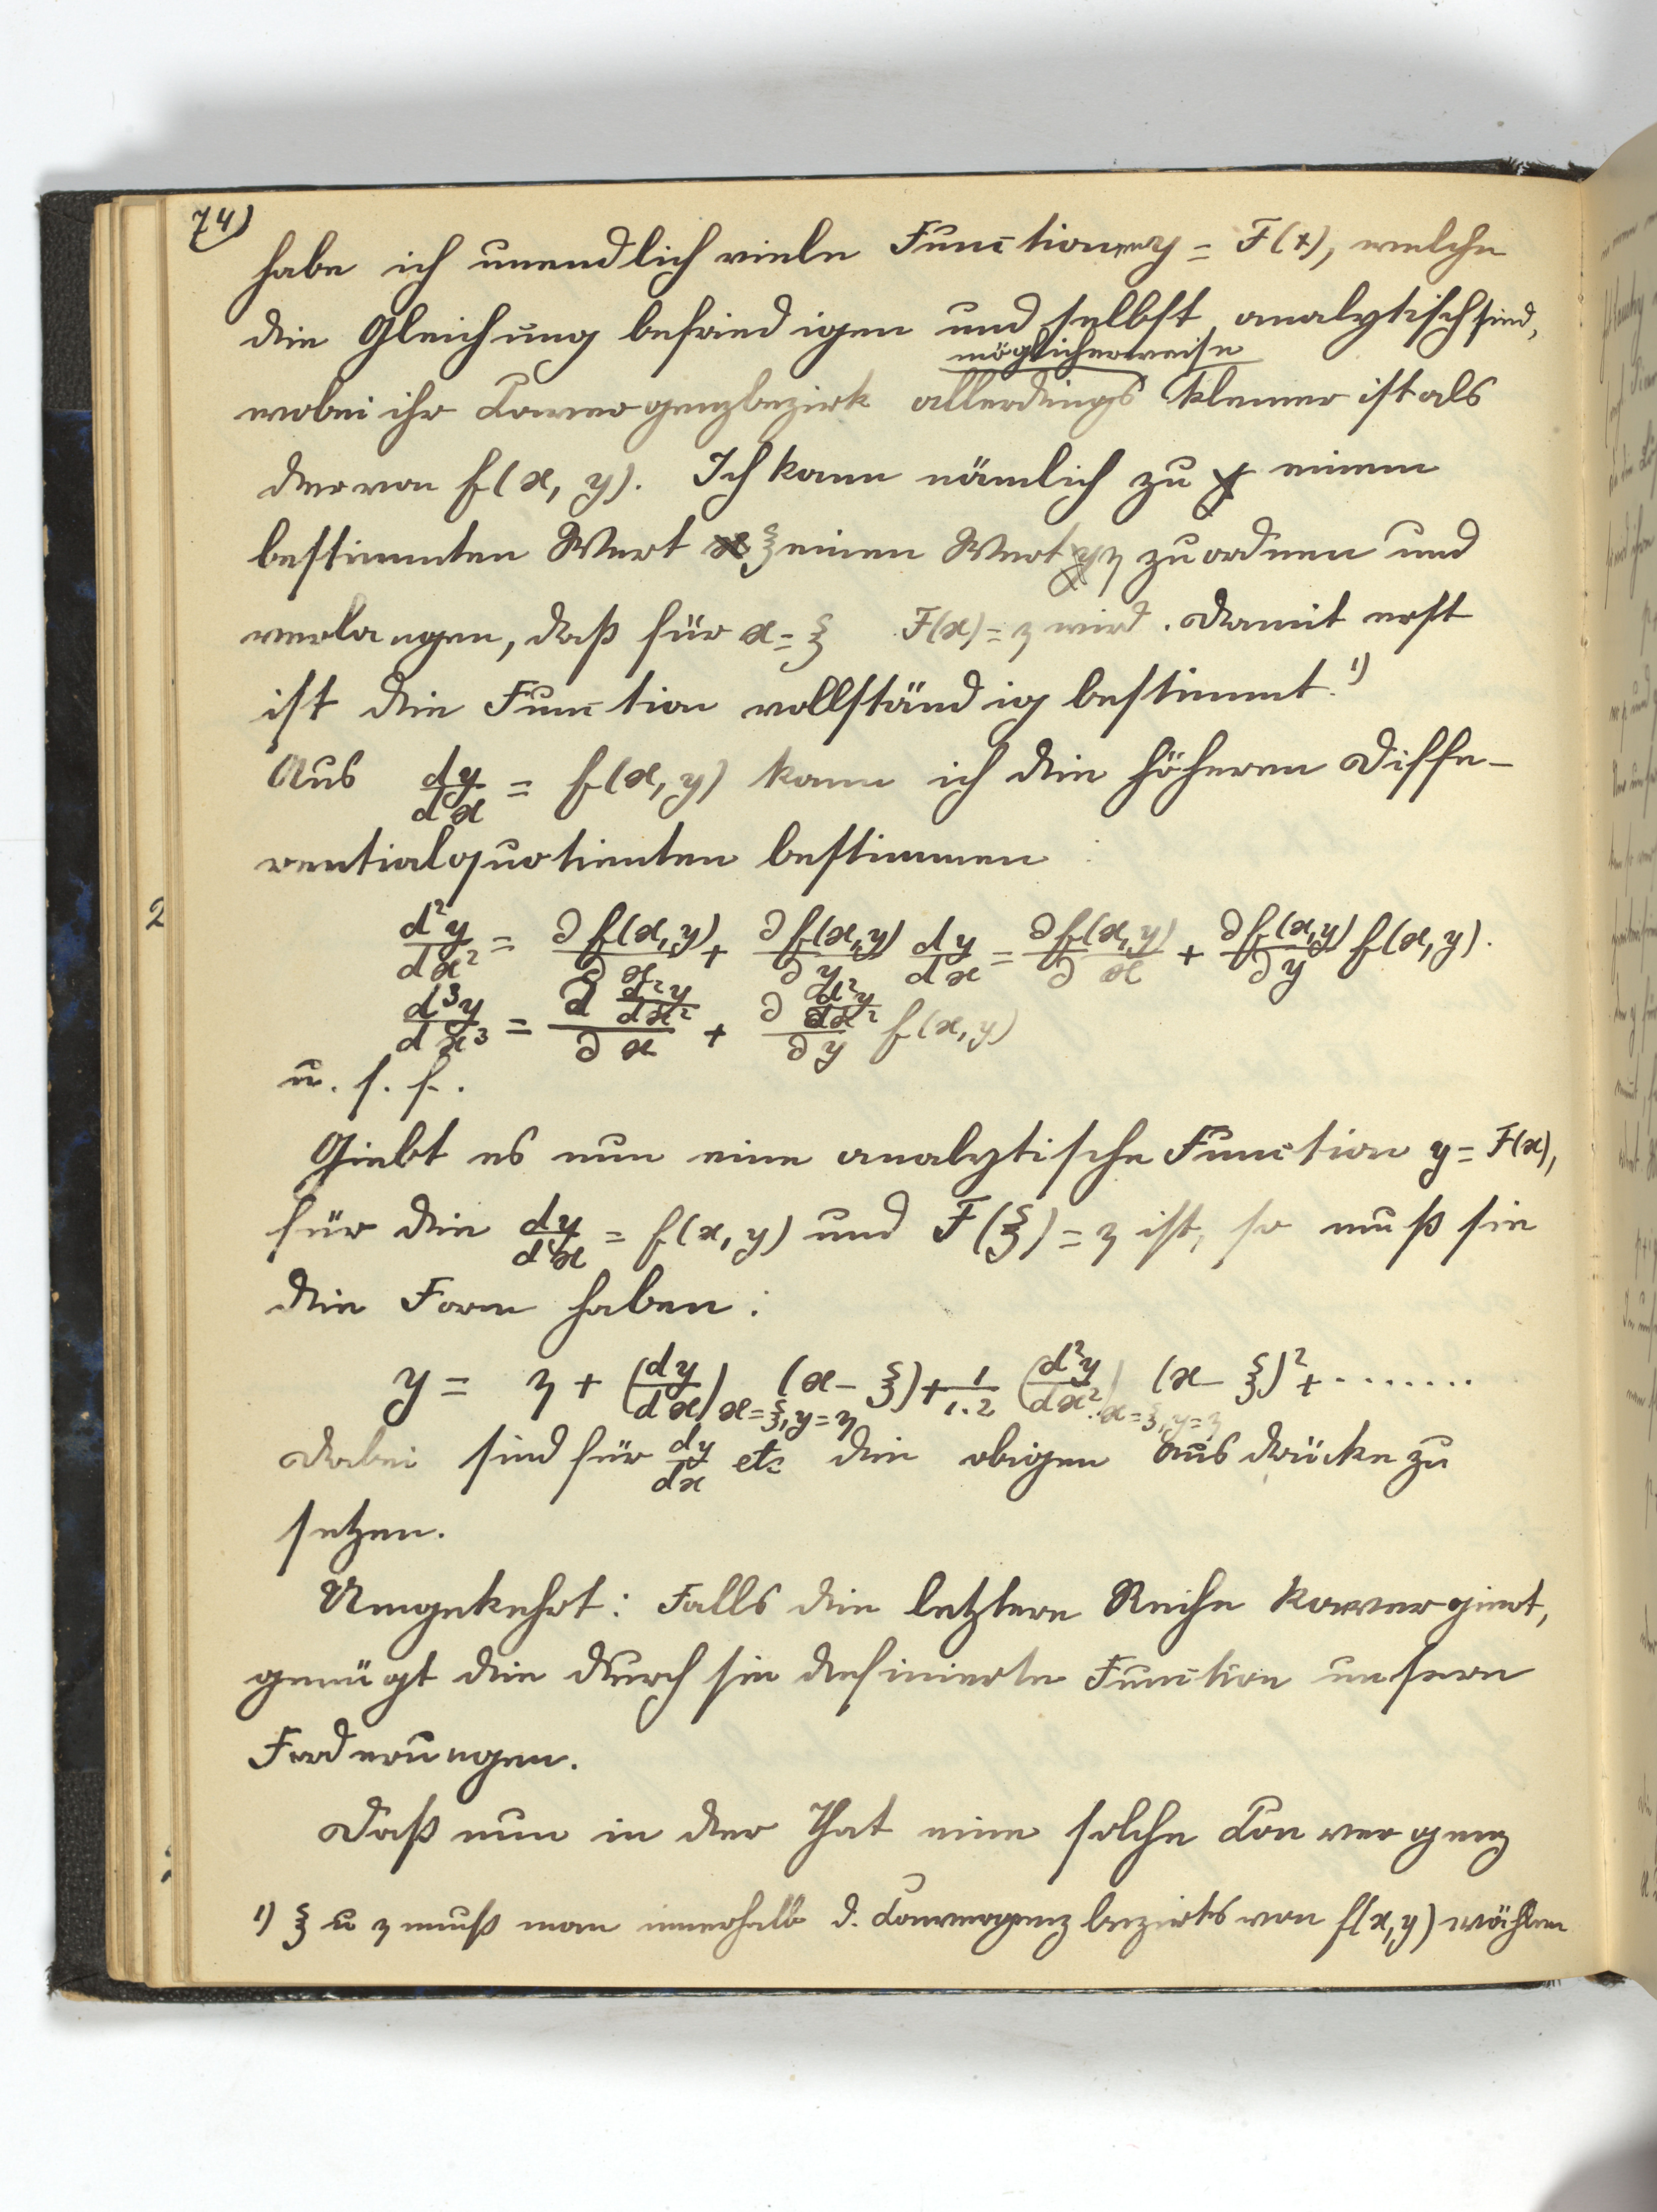 74)
habe ich unendlich viele Functionen y = F(x), welche
die Gleichung befriedigen und selbst analytisch sind,
möglicherweise
wobei ihr Convergenzbezirk allerdings kleiner ist als
der von f(x, y). Ich kann nämlich zu einem
bestimmten Wert ξ einen Wert η zuordnen und
verlangen, daß für x = ξ F(x) = η wird. Damit erst
ist die Function vollständig bestimmt. 1)
Aus dy/dx = f(x, y) kann ich die höheren Diffe-
rentialquotienten bestimmen
d²y/dx² = ∂f(x,y)/∂x + ∂f(x,y)/∂y dy/dx = ∂f(x,y)/∂x + ∂f(x,y)/∂y f(x,y).
d³y/dx³ = ∂ d²y/dx² / ∂x + ∂ d²y/dx² / ∂y f(x,y)
u. s. f.
Giebt es nun eine analytische Function y = F(x),
für die dy/dx = f(x, y) und F(ξ) = η ist, so muß sie
die Form haben:
y = η + (dy/dx) x=ξ, y=η (x − ξ) + 1/1.2 (d²y/dx²) x=ξ, y=η (x − ξ)² + ........
Dabei sind für dy/dx etc die obigen Ausdrücke zu
setzen.
Umgekehrt: Falls die letztere Reihe konvergiert,
genügt die durch sie definierte Function unsern
Forderungen.
Daß nun in der That eine solche Convergenz
1) ξ u η muß man innerhalb d. Convergenzbezirks von f(x,y) wählen
2